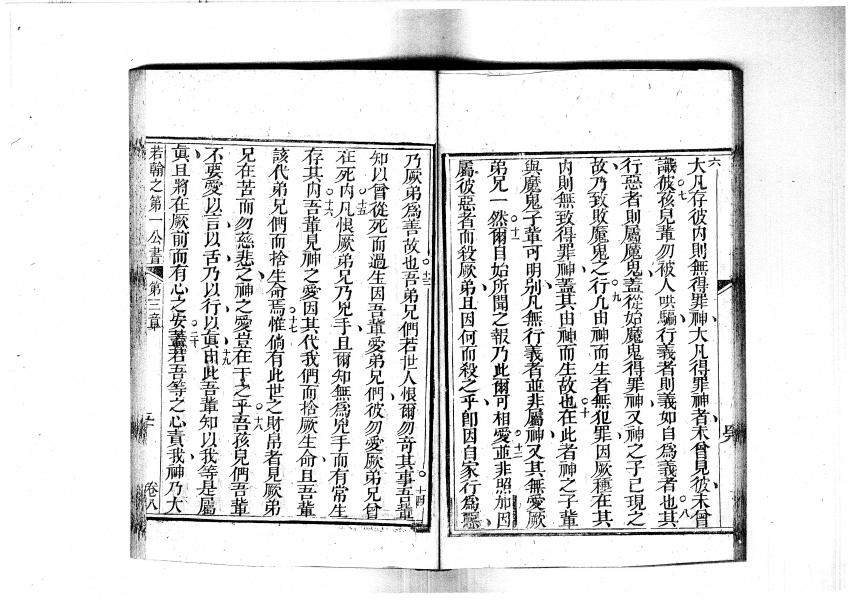 六
大凡存彼內則無得罪神大凡得罪神者未曾見彼未曾
識彼七孩兒輩勿被人哄騙行義者則義如自爲義者也八其
行惡者則屬魔鬼蓋從始魔鬼得罪神又神之子已現之
故乃致敗魔鬼之行九凡由神而生者無犯罪因厥種在其
內則無致得罪神蓋其由神而生故也十在此者神之子輩
與魔鬼子輩可明別凡無行義者並非屬神又其無愛厥
弟兄一然十一爾自始所聞之報乃此爾可相愛十二並非照加因
屬彼惡者而殺厥弟且因何而殺之乎卽因自家行爲惡
乃厥弟爲善故也十三吾弟兄們若世人恨爾勿奇其事十四吾輩
知以曾從死而過生因吾輩愛弟兄們彼勿愛厥弟兄曾
在死內十五凡恨厥弟兄乃兇手且爾知無爲兇手而有常生
存其內十六吾輩見神之愛因其代我們而捨厥生命且吾輩
該代弟兄們而捨生命焉十七惟倘有此世之財帛者見厥弟
兄在苦而勿慈悲之神之愛豈在于之乎十八吾孩兒們吾輩
不要愛以言以舌乃以行以眞十九由此吾輩知以我等是屬
眞且將在厥前而有心之安二十蓋若吾等之心責我神乃大
若翰之第一公書 第三章 五 卷八